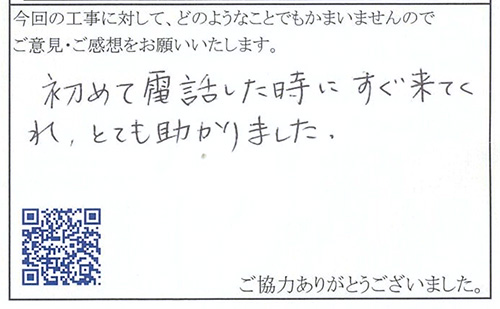 今回の工事に対して、どのようなことでもかまいませんので
ご意見・ご感想をお願いいたします。
初めて電話した時に すぐ来てく
れ、とても助かりました.
ご協力ありがとうございました。